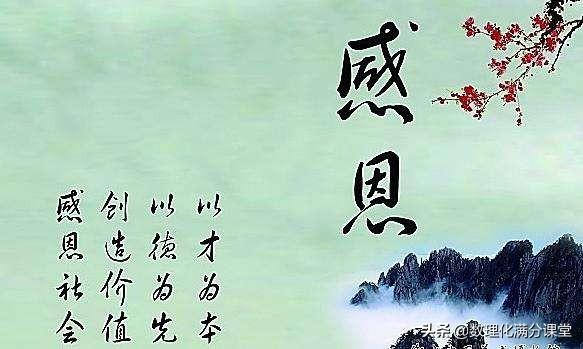 感恩
以才为本
以德为先
创造价值
感恩社会
头条 @数理化满分课堂